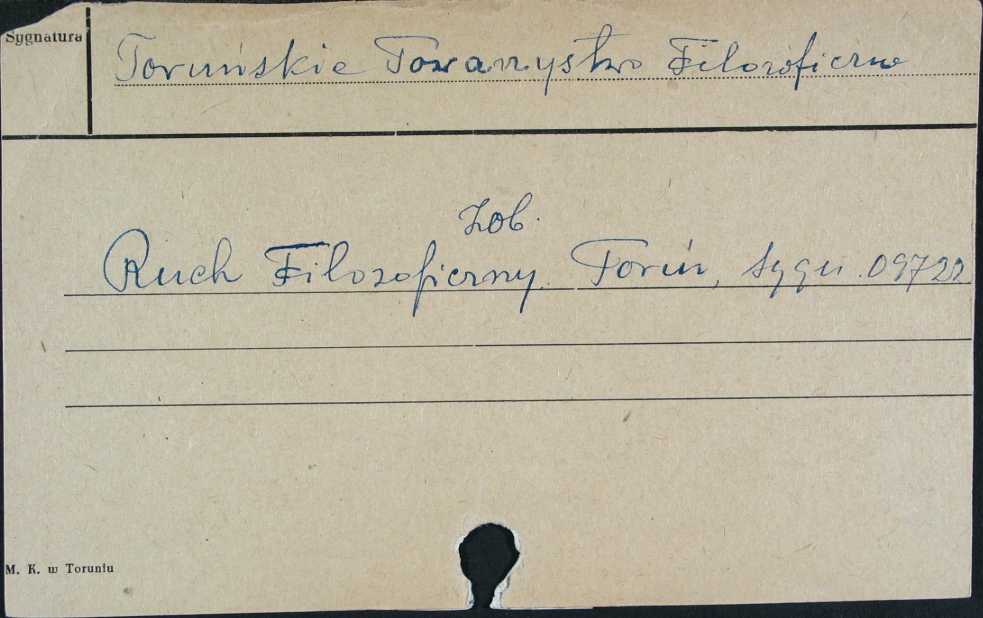 Sygnatura
Toruńskie Towarzystwo Filozoficzne
Zob.
Ruch Filozoficzny. Toruń, Sygn. 09722
M. K. w Toruniu